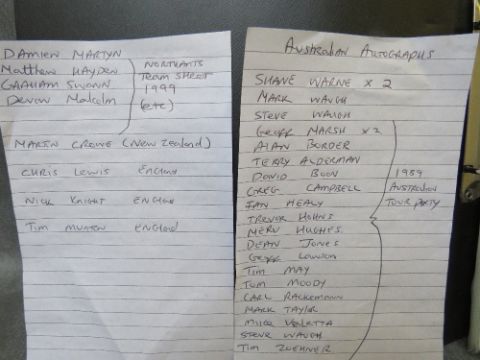 DAMIEN MARTYN
Matthew HAYDEN
GRAHAM SWANN
Devon Malcolm
NORTHANTS
TEAM SHEET
1999
(etc)
MARTIN CROWE (New Zealand)
CHRIS LEWIS ENGLAND
NICK KNIGHT ENGLAND
TIM MUNTON ENGLAND
AUSTRALIAN AUTOGRAPHS
SHANE WARNE x 2
MARK WAUGH
STEVE WAUGH
GEOFF MARSH x2
ALAN BORDER
TERRY ALDERMAN
DAVID BOON
GREG CAMPBELL
IAN HEALY
TREVOR HOHNS
MERV HUGHES
DEAN JONES
GEOFF LAWSON
TIM MAY
TOM MOODY
CARL RACKEMANN
MARK TAYLOR
MIKE VELETTA
STEVE WAUGH
TIM ZOEHRER
1989
AUSTRALIAN
TOUR PARTY